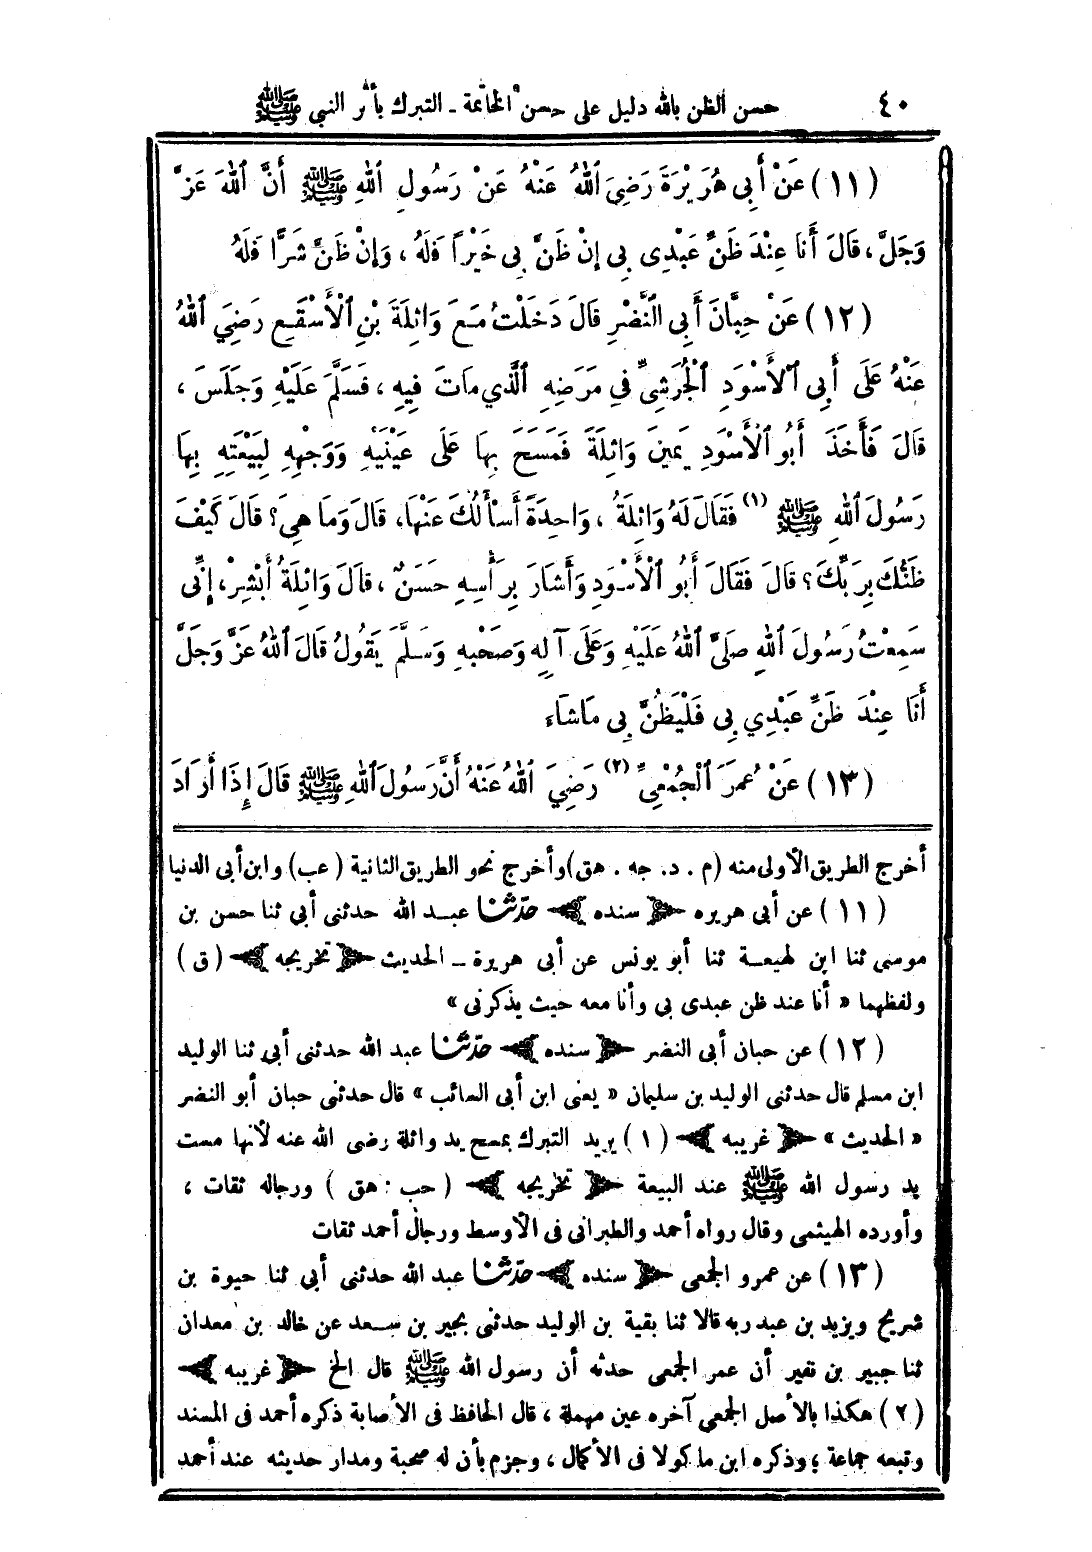 ٤٠ حسن الظن بالله دليل على حسن الخاتمة ـ التبرك بأثر النبي ﷺ
(١١) عَنْ أَبِى هُرَيْرَةَ رَضِيَ اللهُ عَنْهُ عَنْ رَسُولِ اللهِ ﷺ أَنَّ اللهَ عَزَّ
وَجَلَّ، قَالَ أَنَا عِنْدَ ظَنِّ عَبْدِى بِى إِنْ ظَنَّ بِى خَيْرًا فَلَهُ، وَإِنْ ظَنَّ شَرًّا فَلَهُ
(١٢) عَنْ حِبَّانَ أَبِى النَّضْرِ قَالَ دَخَلْتُ مَعَ وَاثِلَةَ بْنِ الْأَسْقَعِ رَضِيَ اللهُ
عَنْهُ عَلَى أَبِى الْأَسْوَدِ الْجُرَشِيِّ فِي مَرَضِهِ الَّذِي مَاتَ فِيهِ، فَسَلَّمَ عَلَيْهِ وَجَلَسَ،
قَالَ فَأَخَذَ أَبُو الْأَسْوَدِ يَمِينَ وَاثِلَةَ فَمَسَحَ بِهَا عَلَى عَيْنَيْهِ وَوَجْهِهِ لِبَيْعَتِهِ بِهَا
رَسُولَ اللهِ ﷺ (١) فَقَالَ لَهُ وَاثِلَةُ، وَاحِدَةً أَسْأَلُكَ عَنْهَا، قَالَ وَمَا هِيَ؟ قَالَ كَيْفَ
ظَنُّكَ بِرَبِّكَ؟ قَالَ فَقَالَ أَبُو الْأَسْوَدِ وَأَشَارَ بِرَأْسِهِ حَسَنٌ، قَالَ وَاثِلَةُ أَبْشِرْ، إِنِّى
سَمِعْتُ رَسُولَ اللهِ صَلَّى اللهُ عَلَيْهِ وَعَلَى آلِهِ وَصَحْبِهِ وَسَلَّمَ يَقُولُ قَالَ اللهُ عَزَّ وَجَلَّ
أَنَا عِنْدَ ظَنِّ عَبْدِي بِى فَلْيَظُنَّ بِى مَاشَاءَ
(١٣) عَنْ عُمَرَ الْجُمْعِيِّ (٢) رَضِيَ اللهُ عَنْهُ أَنَّ رَسُولَ اللهِ ﷺ قَالَ إِذَا أَرَادَ
أخرج الطريق الأولى منه (م . د . جه . هق) وأخرج نحو الطريق الثانية (عب) وابن أبى الدنيا
(١١) عن أبى هريره ﴿ سنده ﴾ حدّثنا عبد الله حدثنى أبى ثنا حسن بن
موسى ثنا ابن لهيعة ثنا أبو يونس عن أبى هريرة ـ الحديث ﴿ تخريجه ﴾ (ق)
ولفظهما « أنا عند ظن عبدى بى وأنا معه حيث يذكرنى »
(١٢) عن حبان أبى النضر ﴿ سنده ﴾ حدّثنا عبد الله حدثنى أبى ثنا الوليد
ابن مسلم قال حدثنى الوليد بن سليمان « يعنى ابن أبى السائب » قال حدثنى حبان أبو النضر
« الحديث » ﴿ غريبه ﴾ (١) يريد التبرك بمسح يد واثلة رضى الله عنه لأنها مست
يد رسول الله ﷺ عند البيعة ﴿ تخريجه ﴾ (حب : هق) ورجاله ثقات،
وأورده الهيثمى وقال رواه أحمد والطبرانى فى الأوسط ورجال أحمد ثقات
(١٣) عن عمرو الجمعى ﴿ سنده ﴾ حدّثنا عبد الله حدثنى أبي ثنا حيوة بن
شريح ويزيد بن عبد ربه قالا ثنا بقية بن الوليد حدثنى بجير بن سعد عن خالد بن معدان
ثنا جبير بن نفير أن عمر الجمعى حدثه أن رسول الله ﷺ قال الخ ﴿ غريبه ﴾
(٢) هكذا بالأصل الجمعى آخره عين مهملة، قال الحافظ فى الاصابة ذكره أحمد فى المسند
وتبعه جماعة؛ وذكره ابن ماكولا فى الأكمال، وجزم بأن له صحبة ومدار حديثه عند أحمد